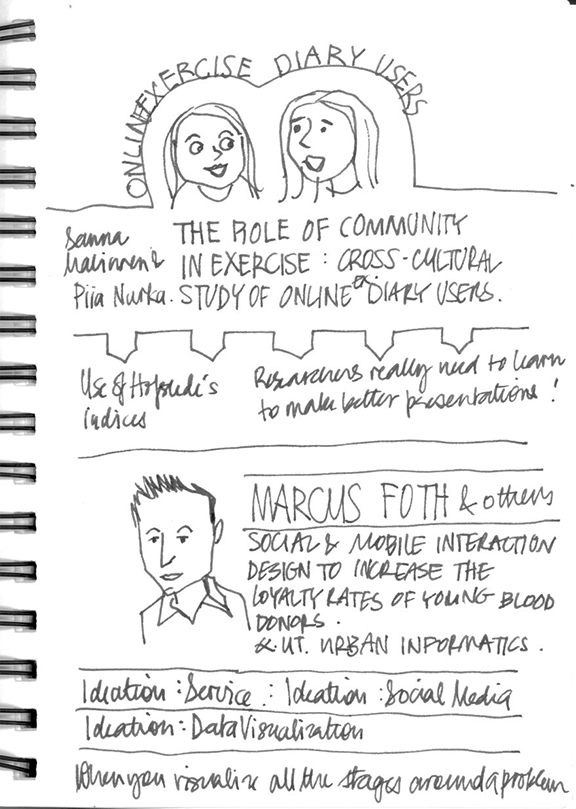 ONLINE EXERCISE DIARY USERS
Sanna
Malinen &
Piia Nurkka.
THE ROLE OF COMMUNITY
IN EXERCISE : CROSS-CULTURAL
STUDY OF ONLINE EX DIARY USERS.
Use of
indices
Researchers really need to learn
to make better presentations !
MARCUS FOTH & others
SOCIAL & MOBILE INTERACTION
DESIGN TO INCREASE THE
LOYALTY RATES OF YOUNG BLOOD
DONORS.
URBAN INFORMATICS.
Ideation : Service : Ideation : Social Media
Ideation : Data Visualization
When you visualize all the stages around a problem